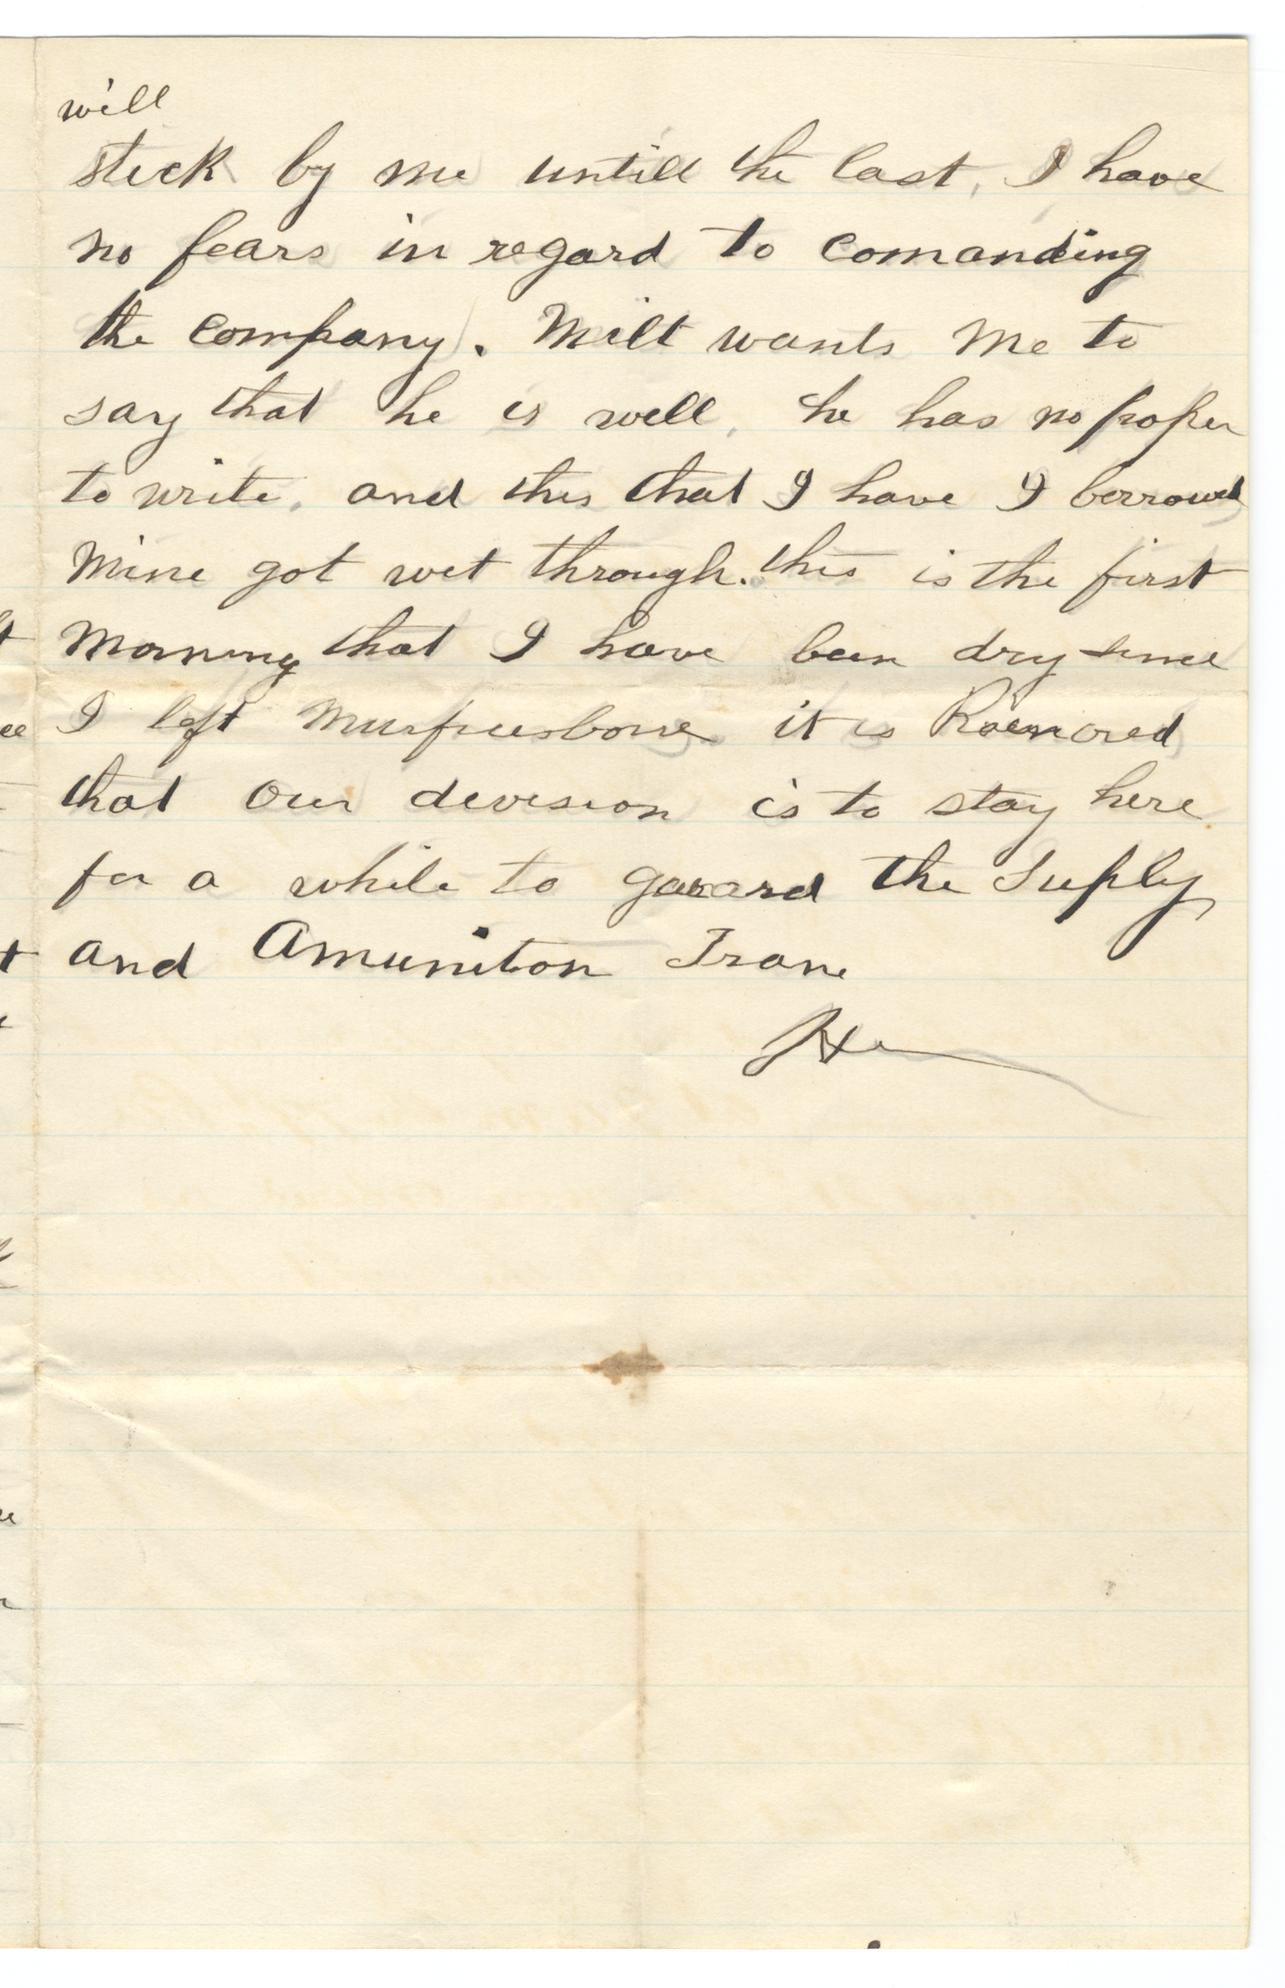 will
stick by me untill the last, I have
no fears in regard to comanding
the company. Milt wants me to
say that he is well, he has no paper
to write, and this that I have I borrowed
Mine got wet through. this is the first
Morning that I have been dry since
I left Murfreesboro it is Roumored
that our devision is to stay here
for a while to gauard the Suply
and Amunition Trane